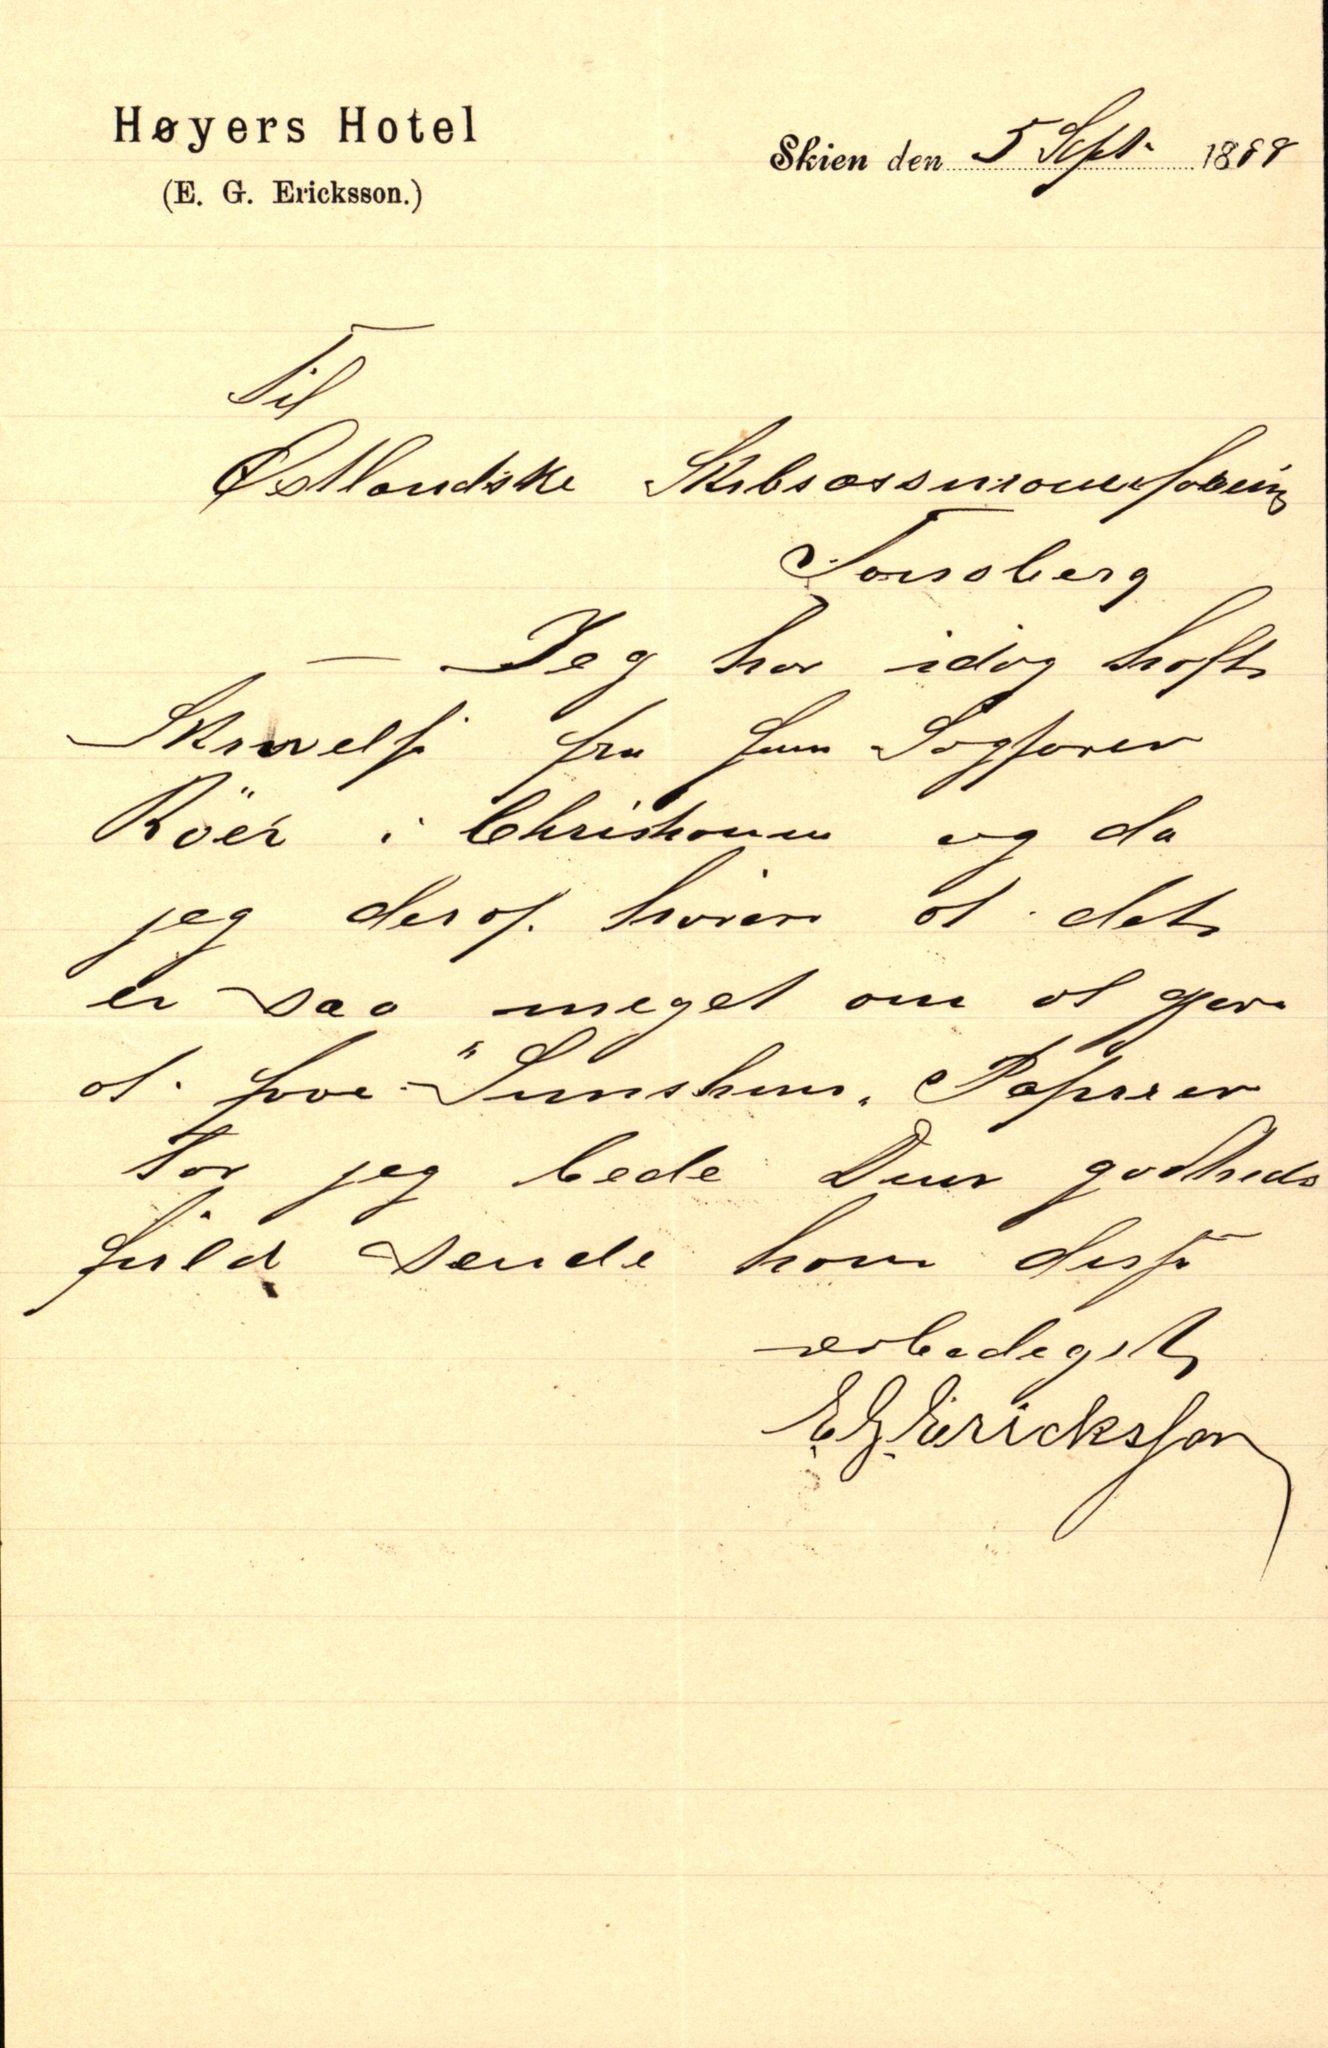 Høyers Hotel
(E. G. Ericksson.)
Skien den 5 Sept. 1888
Til
Østlandske Skibsassuranceforening
Tønsberg
— Jeg har idag haft
Skrivelse fra Sagfører
Röer i Christiania og da
jeg deraf hører at det
er saa meget om at gjøre
at faae "Sunshine" Papirer
tør jeg bede Dem godheds
fuld sende ham disse
ærbødigst
E G Ericksson